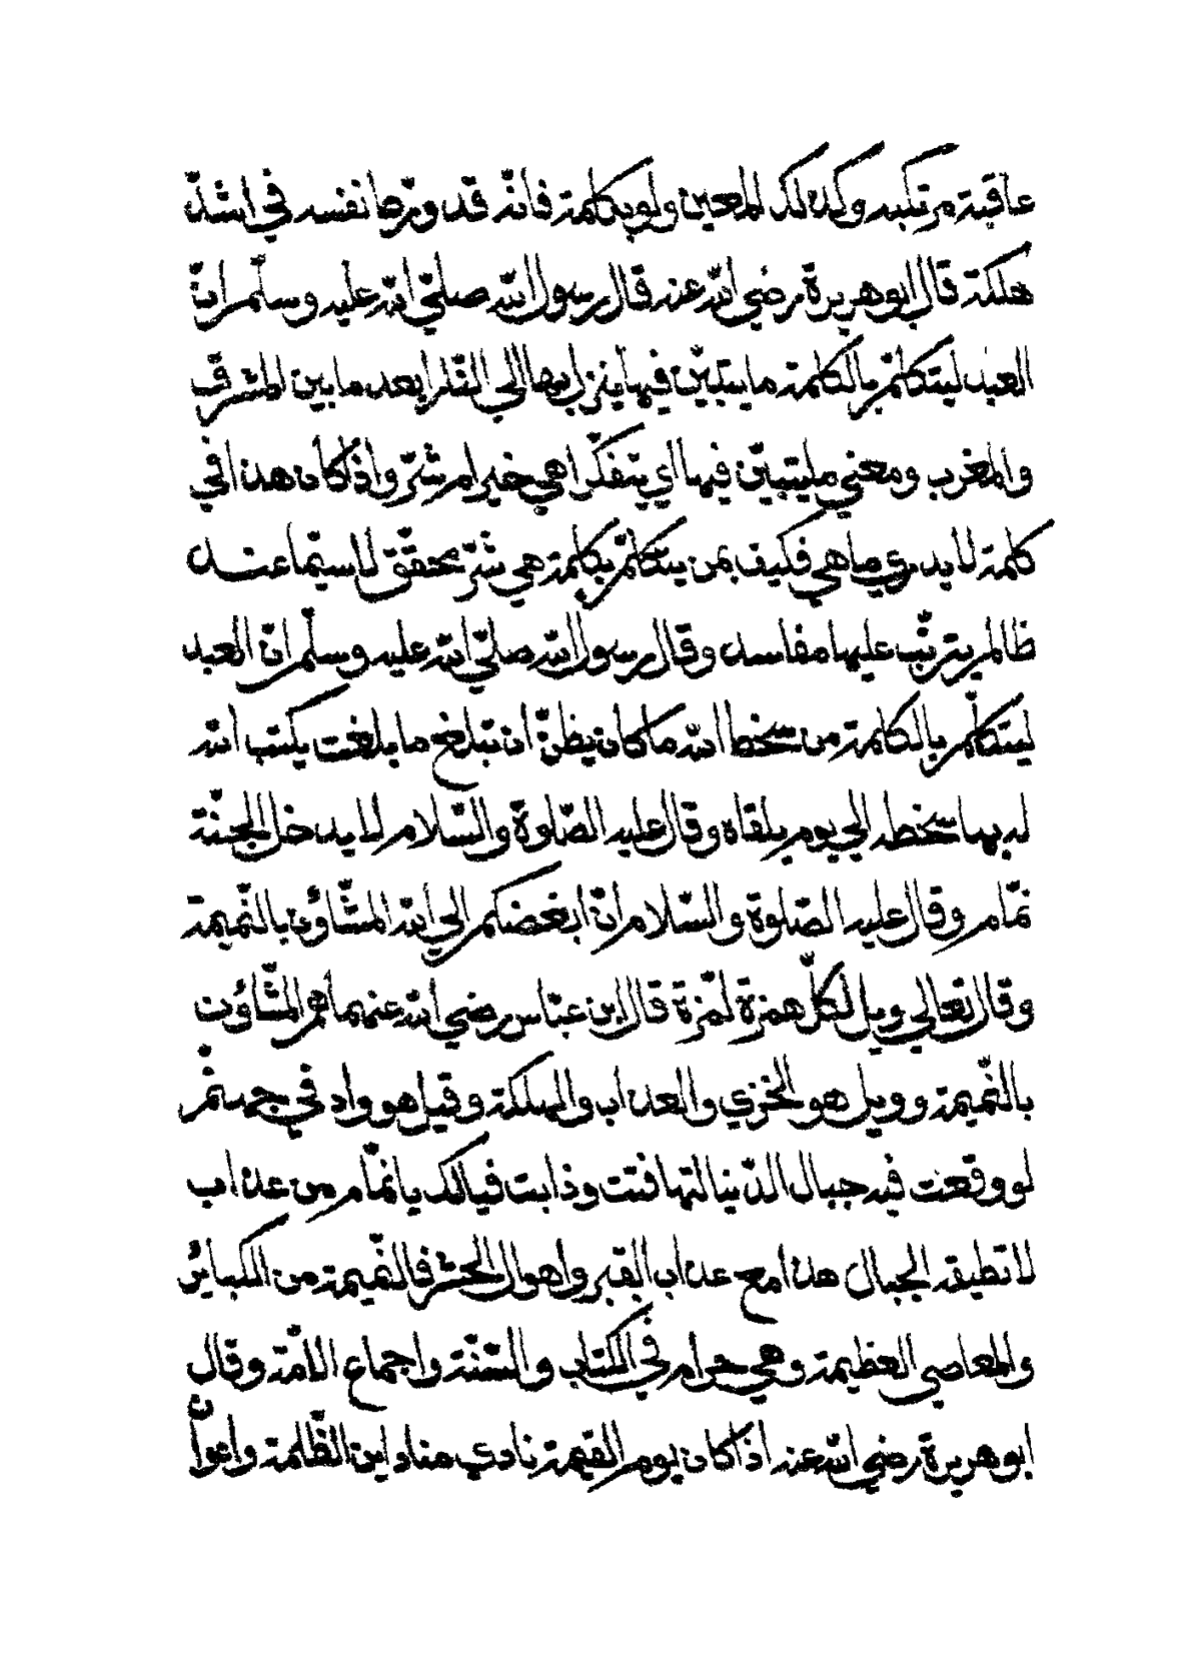 عاقبة مرتكبه وكذلك المعين ولو بكلمة فانّه قد ورّط نفسه في اشدّ
هلكة قال ابو هريرة رضي الله عنه قال رسول الله صلّي الله عليه وسلّم انّ
العبد ليتكلّم بالكلمة ما يتبيّن فيها ينزل بها الي النّار ابعد ما بين المشرق
والمغرب ومعني ما يتبيّن فيها اي يتفكّر اهي خير ام شرّ واذا كان هذا في
كلمة لا يدري ما هي فكيف بمن يتكلّم بكلمة هي شرّ محقّق لا سيّما عند
ظالم يترتّب عليها مفاسد وقال رسول الله صلّي الله عليه وسلّم انّ العبد
ليتكلّم بالكلمة من سخط الله ما كان يظنّ ان تبلغ ما بلغت يكتب الله
له بها سخطه الي يوم يلقاه وقال عليه الصّلوة والسّلام لا يدخل الجنّة
نمّام وقال عليه الصّلوة والسّلام انّ ابغضكم الي الله المشّاؤن بالنّميمة
وقال تعالي ويل لكلّ همزة لمّزة قال ابن عبّاس رضي الله عنهما هم المشّاؤن
بالنّميمة وويل هو الخزي والعذاب والهلكة وقيل هو واد في جهنّم
لو وقعت فيه جبال الدّنيا لتهافتت وذابت فيا لك يا نمّام من عذاب
لا تطيقه الجبال هذا مع عذاب القبر واهوال الحشر فالنّميمة من الكبائر
والمعاصي العظيمة وهي حرام في الكتاب والسّنّة واجماع الامّة وقال
ابو هريرة رضي الله عنه اذا كان يوم القيمة نادي مناد اين الظّلمة واعوان